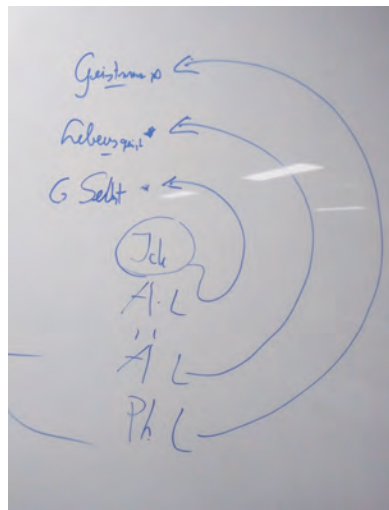 Geistmensch
Lebensgeist
G Selbst
Ich
A. L
Ä L
Ph. L